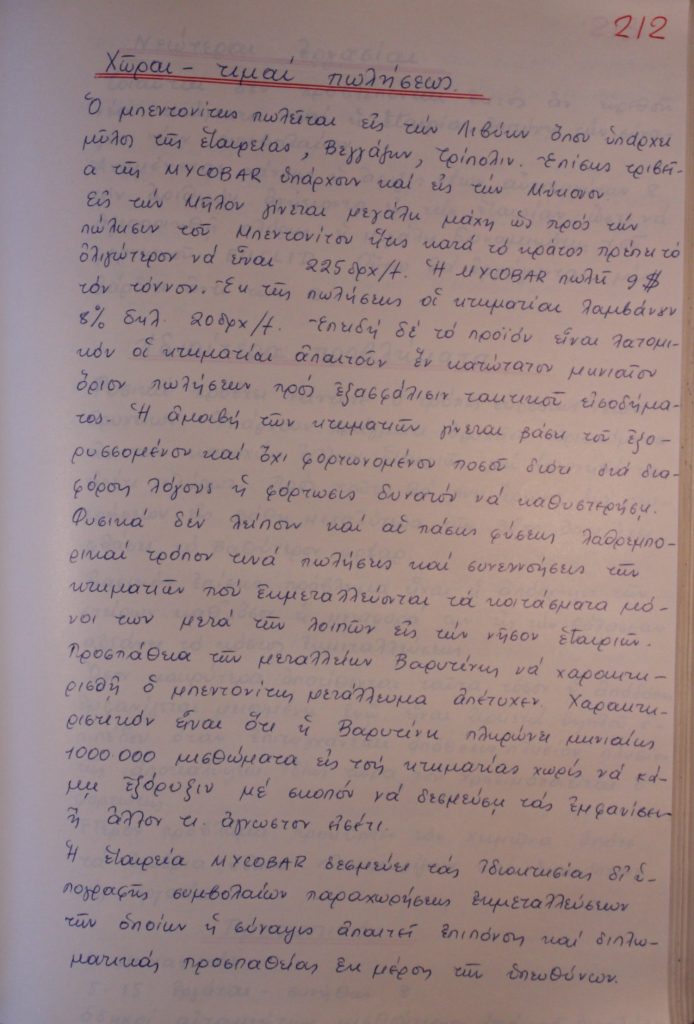 212
Χῶραι – τιμαί πωλήσεως.
Ὁ μπεντονίτης πωλεῖται εἰς τήν Λιβύην ὅπου ὑπάρχει
μῦλοι τῆς ἑταιρείας, Βεγγάζην, Τρίπολιν. Ἐπίσης τριβεῖ-
α τῆς MYCOBAR ὑπάρχουν καί εἰς τήν Μύκονον
Εἰς τήν Μῆλον γίνεται μεγάλη μάχη ὡς πρός τήν
πώλησιν τοῦ μπεντονίτου ἥτις κατά τό κράτος πρέπει τό
ὀλιγώτερον νά εἶναι 225 δρχ/t. Ἡ MYCOBAR πωλεῖ 9 $
τόν τόννον. Ἐκ τῆς πωλήσεως οἱ κτηματίαι λαμβάνουν
8% δηλ. 20 δρχ/t. Ἐπειδή δέ τό προϊόν εἶναι λατομι-
κόν οἱ κτηματίαι ἀπαιτοῦν ἕν κατώτατον μηνιαῖον
ὅριον πωλήσεων πρός ἐξασφάλισιν τακτικοῦ εἰσοδήμα-
τος. Ἡ ἀμοιβή τῶν κτηματιῶν γίνεται βάσει τοῦ ἐξο-
ρυσσομένου καί ὄχι φορτωνομένου ποσοῦ διότι διά δια-
φόρους λόγους ἡ φόρτωσις δυνατόν νά καθυστερήσῃ.
Φυσικά δέν λείπουν καί αἱ πάσης φύσεως λαθρεμπο-
ρικαί τρόπον τινά πωλήσεις καί συνεννοήσεις τῶν
κτηματιῶν πού ἐκμεταλλεύονται τά κοιτάσματα μό-
νοι των μετά τῶν λοιπῶν εἰς τήν νῆσον ἑταιριῶν.
Προσπάθεια τῶν μεταλλείων Βαρυτίνης νά χαρακτη-
ρισθῇ ὁ μπεντονίτης μετάλλευμα ἀπέτυχεν. Χαρακτη-
ριστικόν εἶναι ὅτι ἡ Βαρυτίνη πληρώνει μηνιαίως
1000.000 μισθώματα εἰς τούς κτηματίας χωρίς νά κά-
μῃ ἐξόρυξιν μέ σκοπόν νά δεσμεύσῃ τάς ἐμφανίσεις
ἤ ἄλλον τι ἄγνωστον εἰσέτι.
Ἡ ἑταιρεία MYCOBAR δεσμεύει τάς ἰδιοκτησίας δι' ὑ-
πογραφῆς συμβολαίων παραχωρήσεως ἐκμεταλλεύσεων
τῶν ὁποίων ἡ σύναψις ἀπαιτεῖ ἐπιπόνους καί διπλω-
ματικάς προσπαθείας ἐκ μέρους τῶν ὑπευθύνων.